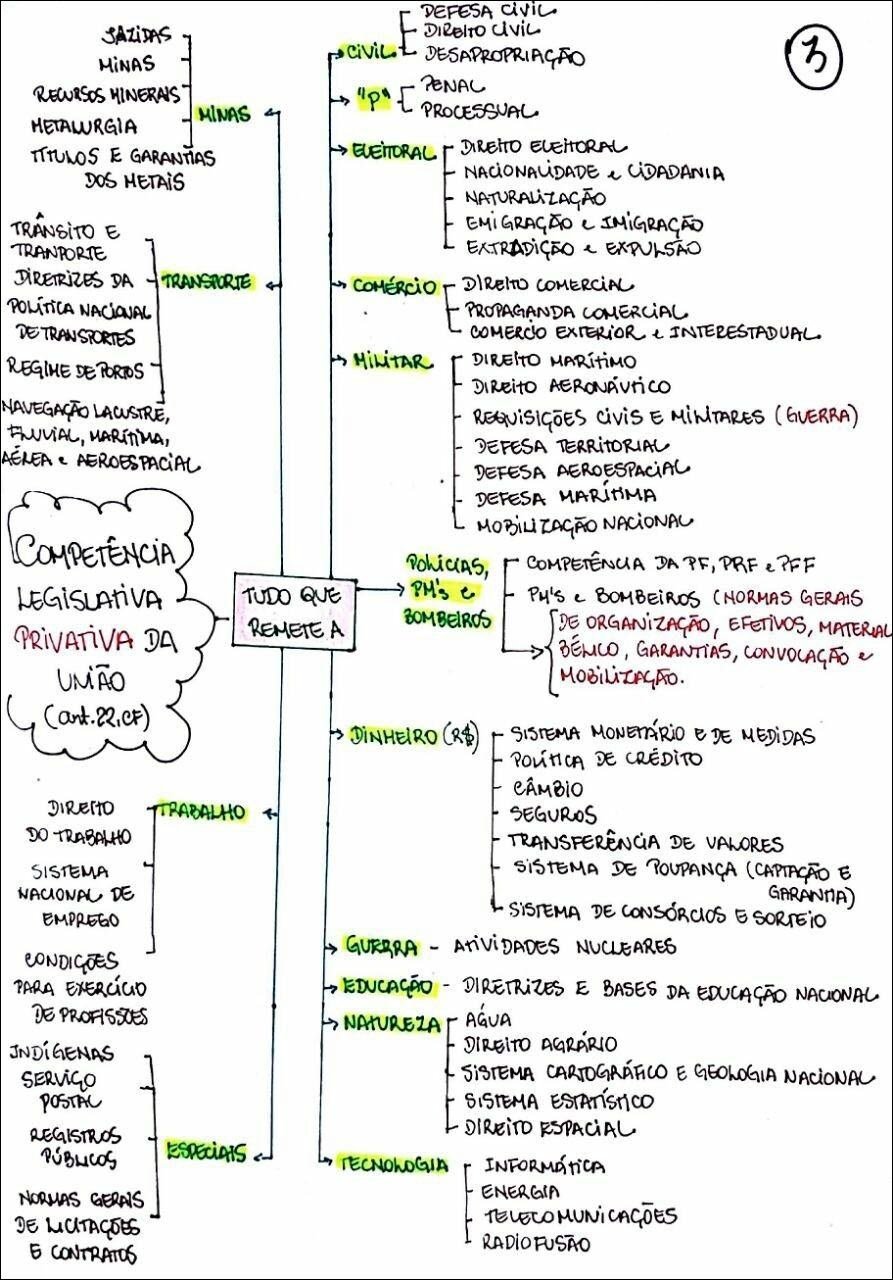 3
JAZIDAS
MINAS
RECURSOS MINERAIS
METALURGIA
TÍTULOS E GARANTIAS
DOS METAIS
MINAS
TRÂNSITO E
TRANPORTE
DIRETRIZES DA
POLÍTICA NACIONAL
DE TRANSPORTES
REGIME DE PORTOS
NAVEGAÇÃO LACUSTRE,
FLUVIAL, MARÍTIMA,
AÉREA e AEROESPACIAL
TRANSPORTE
COMPETÊNCIA
LEGISLATIVA
PRIVATIVA DA
UNIÃO
(art. 22, CF)
TUDO QUE
REMETE A
DIREITO
DO TRABALHO
SISTEMA
NACIONAL DE
EMPREGO
CONDIÇÕES
PARA EXERCÍCIO
DE PROFISSÕES
TRABALHO
INDÍGENAS
SERVIÇO
POSTAL
REGISTROS
PÚBLICOS
NORMAS GERAIS
DE LICITAÇÕES
E CONTRATOS
ESPECIAIS
CIVIL
DEFESA CIVIL
DIREITO CIVIL
DESAPROPRIAÇÃO
"P"
PENAL
PROCESSUAL
ELEITORAL
DIREITO ELEITORAL
NACIONALIDADE e CIDADANIA
NATURALIZAÇÃO
EMIGRAÇÃO e IMIGRAÇÃO
EXTRADIÇÃO e EXPULSÃO
COMÉRCIO
DIREITO COMERCIAL
PROPAGANDA COMERCIAL
COMÉRCIO EXTERIOR e INTERESTADUAL
MILITAR
DIREITO MARÍTIMO
DIREITO AERONÁUTICO
REQUISIÇÕES CIVIS E MILITARES (GUERRA)
DEFESA TERRITORIAL
DEFESA AEROESPACIAL
DEFESA MARÍTIMA
MOBILIZAÇÃO NACIONAL
POLÍCIAS,
PM's e
BOMBEIROS
COMPETÊNCIA DA PF, PRF e PFF
PM's e BOMBEIROS (NORMAS GERAIS
DE ORGANIZAÇÃO, EFETIVOS, MATERIAL
BÉLICO, GARANTIAS, CONVOCAÇÃO e
MOBILIZAÇÃO.
DINHEIRO (R$)
SISTEMA MONETÁRIO E DE MEDIDAS
POLÍTICA DE CRÉDITO
CÂMBIO
SEGUROS
TRANSFERÊNCIA DE VALORES
SISTEMA DE POUPANÇA (CAPTAÇÃO E
GARANTIA)
SISTEMA DE CONSÓRCIOS E SORTEIO
GUERRA - ATIVIDADES NUCLEARES
EDUCAÇÃO - DIRETRIZES E BASES DA EDUCAÇÃO NACIONAL
NATUREZA
ÁGUA
DIREITO AGRÁRIO
SISTEMA CARTOGRÁFICO E GEOLOGIA NACIONAL
SISTEMA ESTATÍSTICO
DIREITO ESPACIAL
TECNOLOGIA
INFORMÁTICA
ENERGIA
TELECOMUNICAÇÕES
RADIOFUSÃO